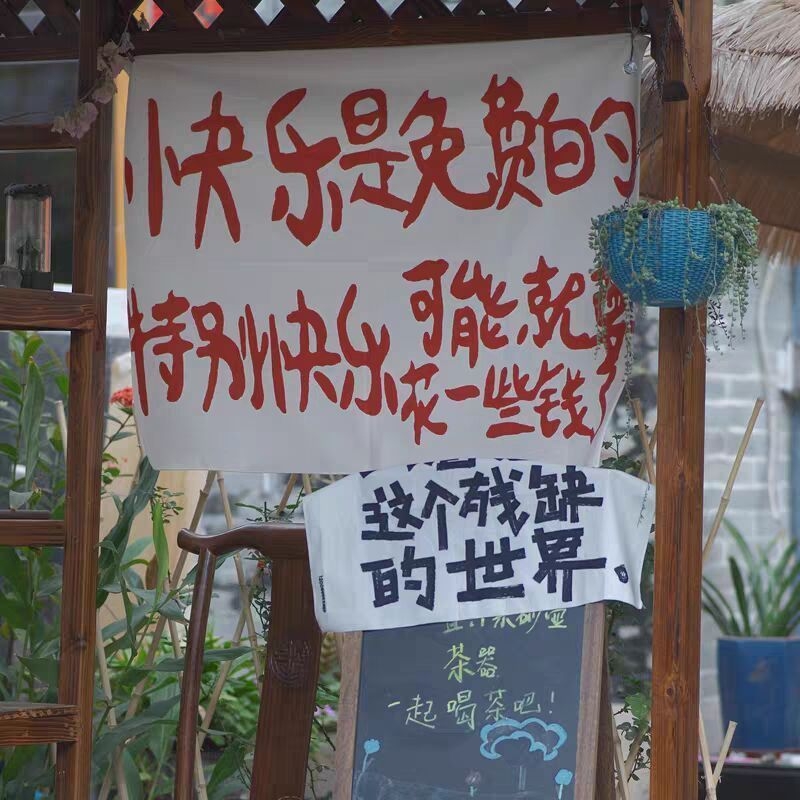 快乐是免费的
特别快乐可能就要
花一些钱了
这个残缺
的世界
茶器
一起喝茶吧！